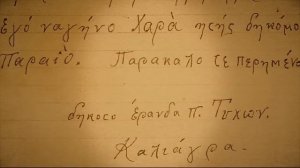 Εγό ναγήνο Χαρὰ ητής δηκόμο
Παραιό. Παρακαλο σε περημένο
δηκοσο έρανδα π. Τυχων.
Καλιάγρα.